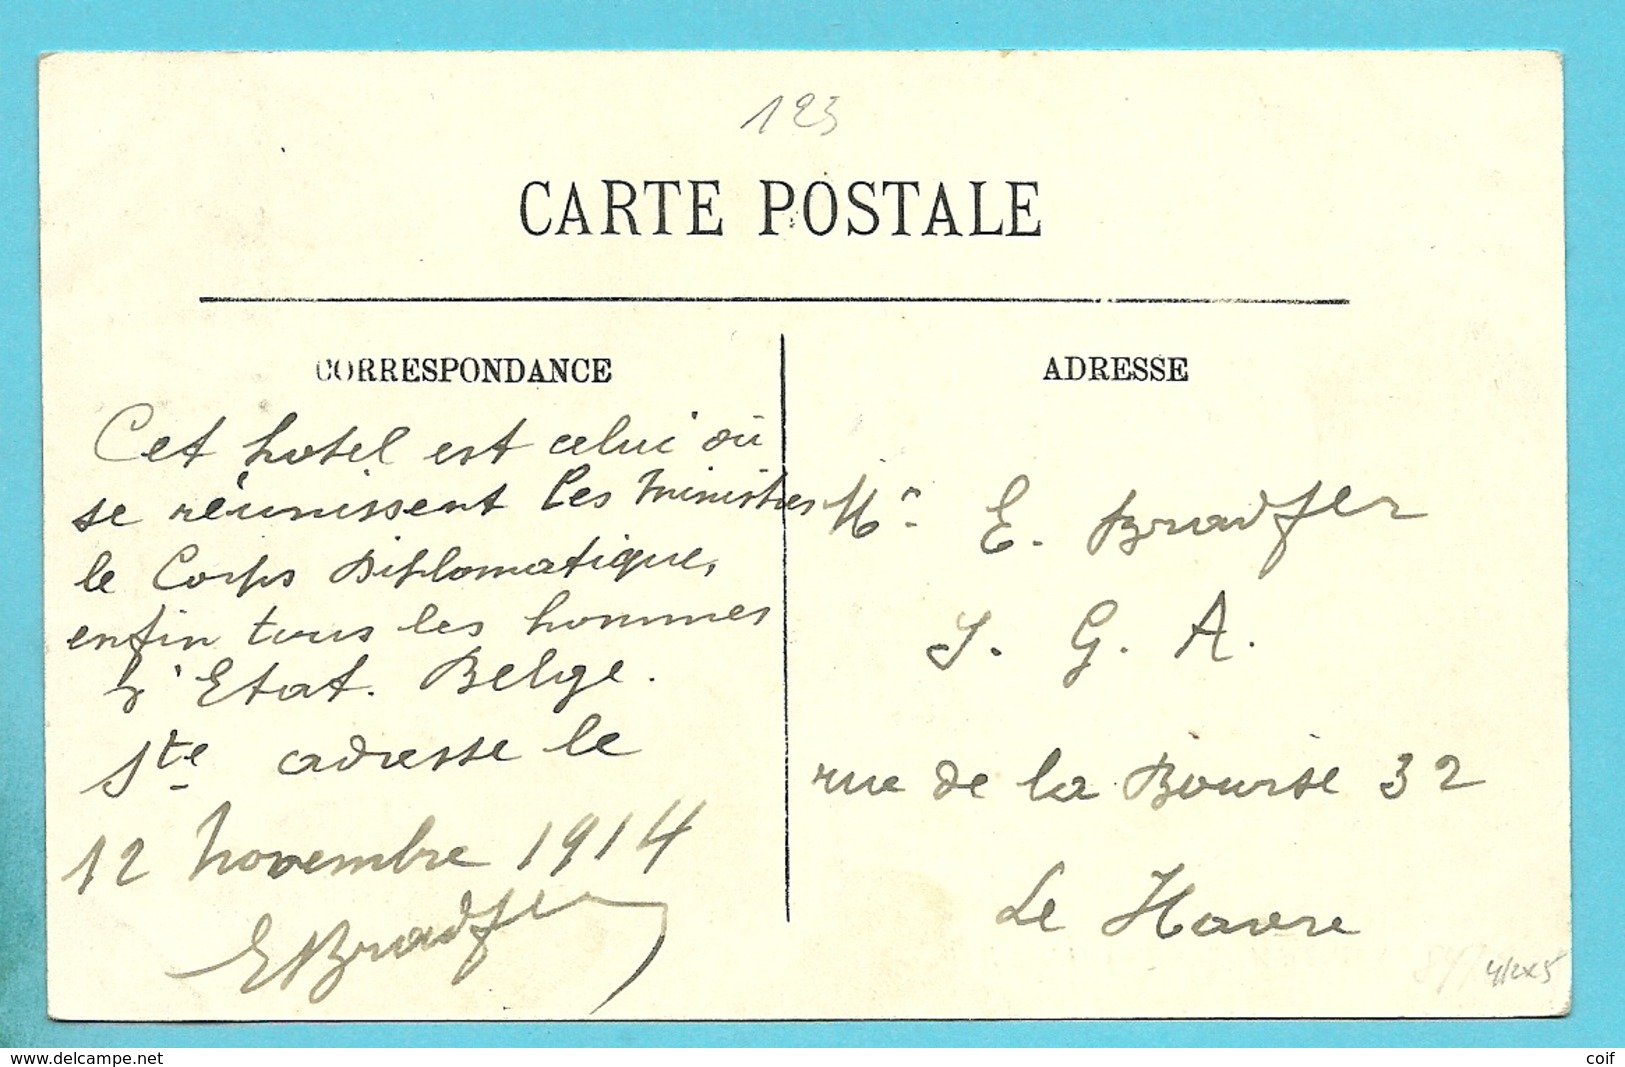 123
CARTE POSTALE
CORRESPONDANCE
Cet hotel est celui où
se réunissent les Ministres
le Corps Diplomatique,
enfin tous les hommes
d'Etat. Belge.
Ste adresse le
12 novembre 1914
E Bradfer
ADRESSE
Mr. E. Bradfer
I. G. A.
rue de la Bourse 32
Le Havre
www.delcampe.net
coif